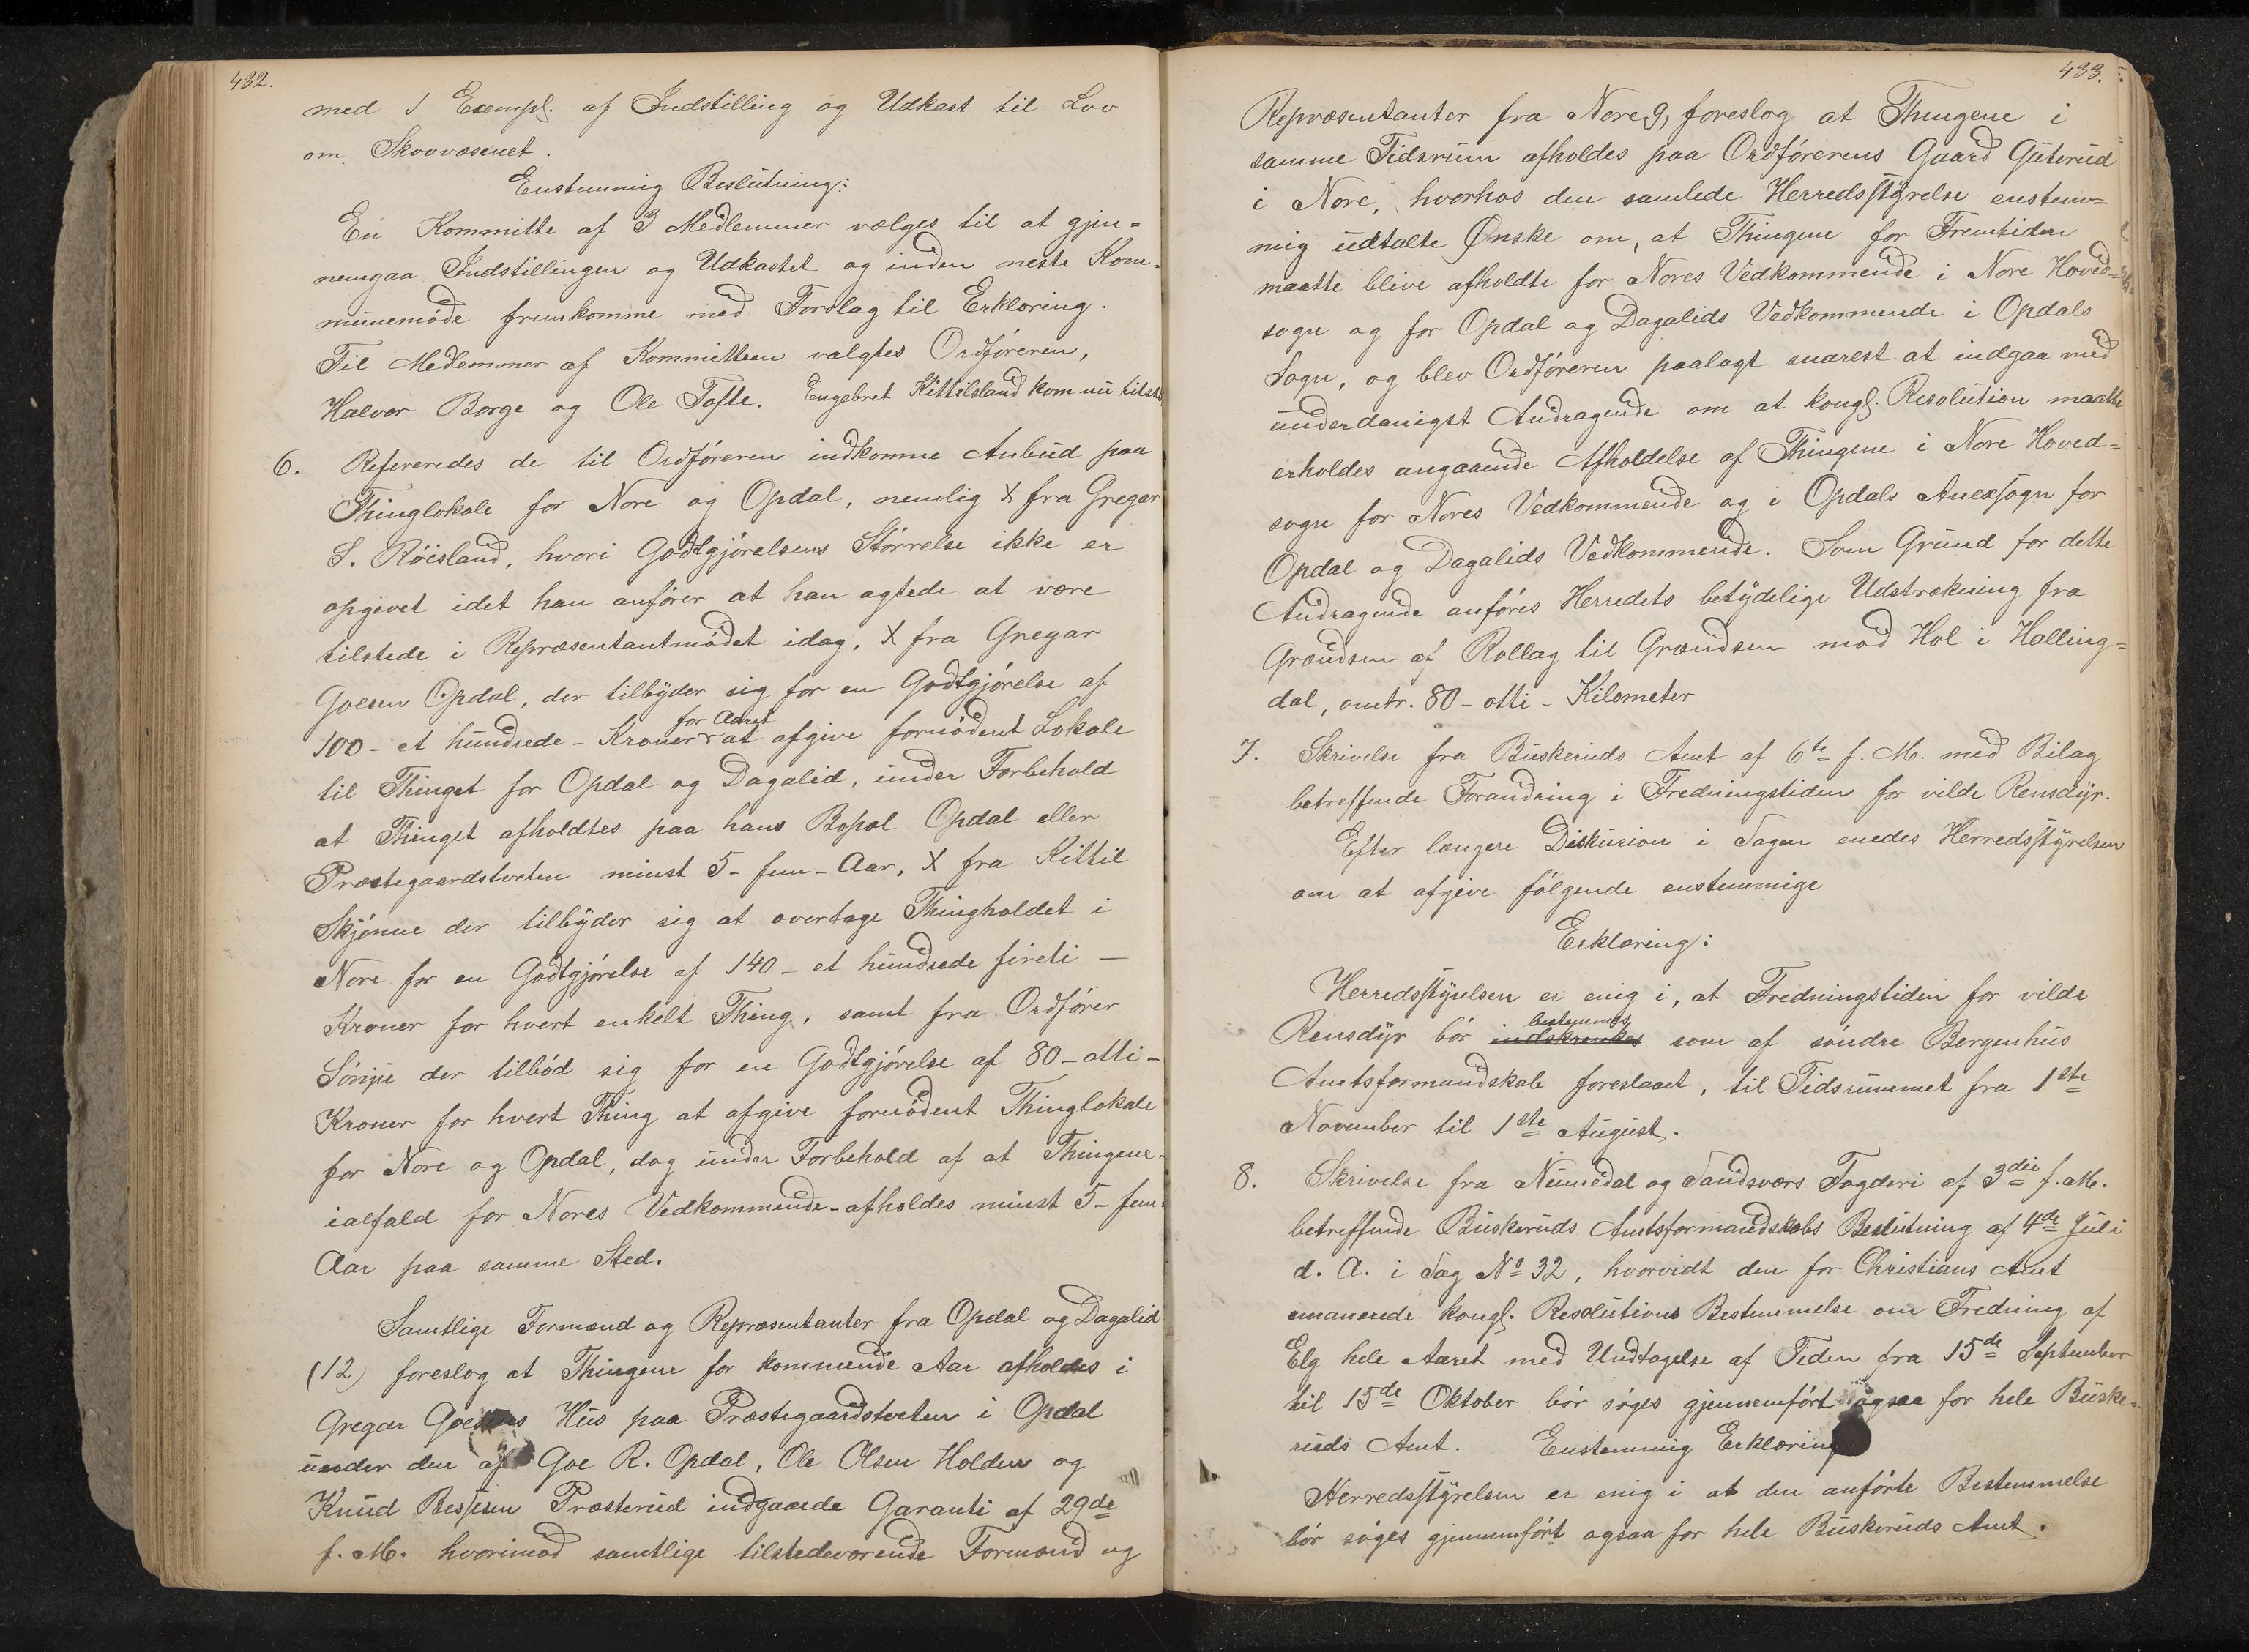 432.
med 1 Exempl. af Indstilling og Udkast til Lov
om Skovvæsenet.
Enstemmig Beslutning:
En Kommitte af 3 Medlemmer vælges til at gjen-
nemgaa Indstillingen og Udkastet og inden neste Kom-
munemöde fremkomme med Forslag til Erklæring.
Til Medlemmer af Kommitteen valgtes Ordföreren,
Halvor Borge og Ole Tofte. Engebret Kittilsland kom nu tilsted
6. Refereredes de til Ordföreren indkomne Anbud paa
Thinglokale for Nore og Opdal, nemlig X fra Gregar
S. Röisland, hvori Godtgjörelsens Störrelse ikke er
opgivet idet han anförer at han agtede at være
tilstede i Repræsentantmödet idag, X fra Gregar
Goesen Opdal, der tilbyder sig for en Godtgjörelse af
100 - et hundrede - Kroner for Aaret at afgive fornödent Lokale
til Thinget for Opdal og Dagalid, under Forbehold
at Thinget afholdtes paa hans Bopæl Opdal eller
Præstegaardstveten minst 5 - fem - Aar, X fra Kittil
Skjönne der tilbyder sig at overtage Thingholdet i
Nore for en Godtgjörelse af 140 - et hundrede firti -
Kroner for hvert enkelt Thing, samt fra Ordförer
der tilböd sig for en Godtgjörelse af 80 - otti -
Kroner for hvert Thing at afgive fornödent Thinglokale
for Nore og Opdal, dog under Forbehold af at Thingene -
ialfald for Nores Vedkommende - afholdes minst 5 - fem
Aar paa samme Sted.
Samtlige Formænd og Repræsentanter fra Opdal og Dagalid
(12) foreslog at Thingene for kommende Aar afholdes i
Gregar Goesens Hus paa Præstegaardstveten i Opdal
under den af Goe R. Opdal, Ole Olsen Holden og
Knud Bessesen Præsterud indgaaede Garanti af 29de
f. M. hvorimod samtlige tilstedeværende Formænd og
433.
Repræsentanter fra Nore, 9, foreslog at Thingene i
samme Tidsrum afholdes paa Ordförerens Gaard Guterud
i Nore, hvorhos den samlede Herredsstyrelse enstem-
mig udtalte Ønske om, at Thingene for Fremtiden
maatte blive afholdte for Nores Vedkommende i Nore Hoved-
sogn og for Opdal og Dagalids Vedkommende i Opdals
Sogn, og blev Ordföreren paalagt snarest at indgaa med
underdanigst Andragende om at kongl. Resolution maatte
erholdes angaaende Afholdelse af Thingene i Nore Hoved-
sogn for Nores Vedkommende og i Opdals Anexsogn for
Opdal og Dagalids Vedkommende. Som Grund for dette
Andragende anföres Herredets betydelige Udstrækning fra
Grændsen af Rollag til Grændsen mod Hol i Halling-
dal, omtr. 80 - otti - Kilometer
7. Skrivelse fra Buskeruds Amt af 6te f. M. med Bilag
betreffende Forandring i Fredningstiden for vilde Rensdyr.
Efter længere Diskusion i Sagen enedes Herredsstyrelsen
om at afgive fölgende enstemmige
Erklæring:
Herredsstyrelsen er enig i, at Fredningstiden for vilde
Rensdyr bör indskrænkes bestemmes som af söndre Bergenhus
Amtsformandskab foreslaaet, til Tidsrummet fra 1ste
November til 1ste August.
8. Skrivelse fra Numedal og Sandsværs Fogderi af 3die f. M.
betreffende Buskeruds Amtsformandskabs Beslutning af 4de Juli
d. A. i Sag No 32, hvorvidt den for Christians Amt
emanerede kongl. Resolutions Bestemmelse om Fredning af
Elg hele Aaret med Undtagelse af Tiden fra 15de September
til 15de Oktober bör söges gjennemfört ogsaa for hele Buske-
ruds Amt. Enstemmig Erklæring
Herredsstyrelsen er enig i at den anförte Bestemmelse
bör söges gjennemfört ogsaa for hele Buskeruds Amt.